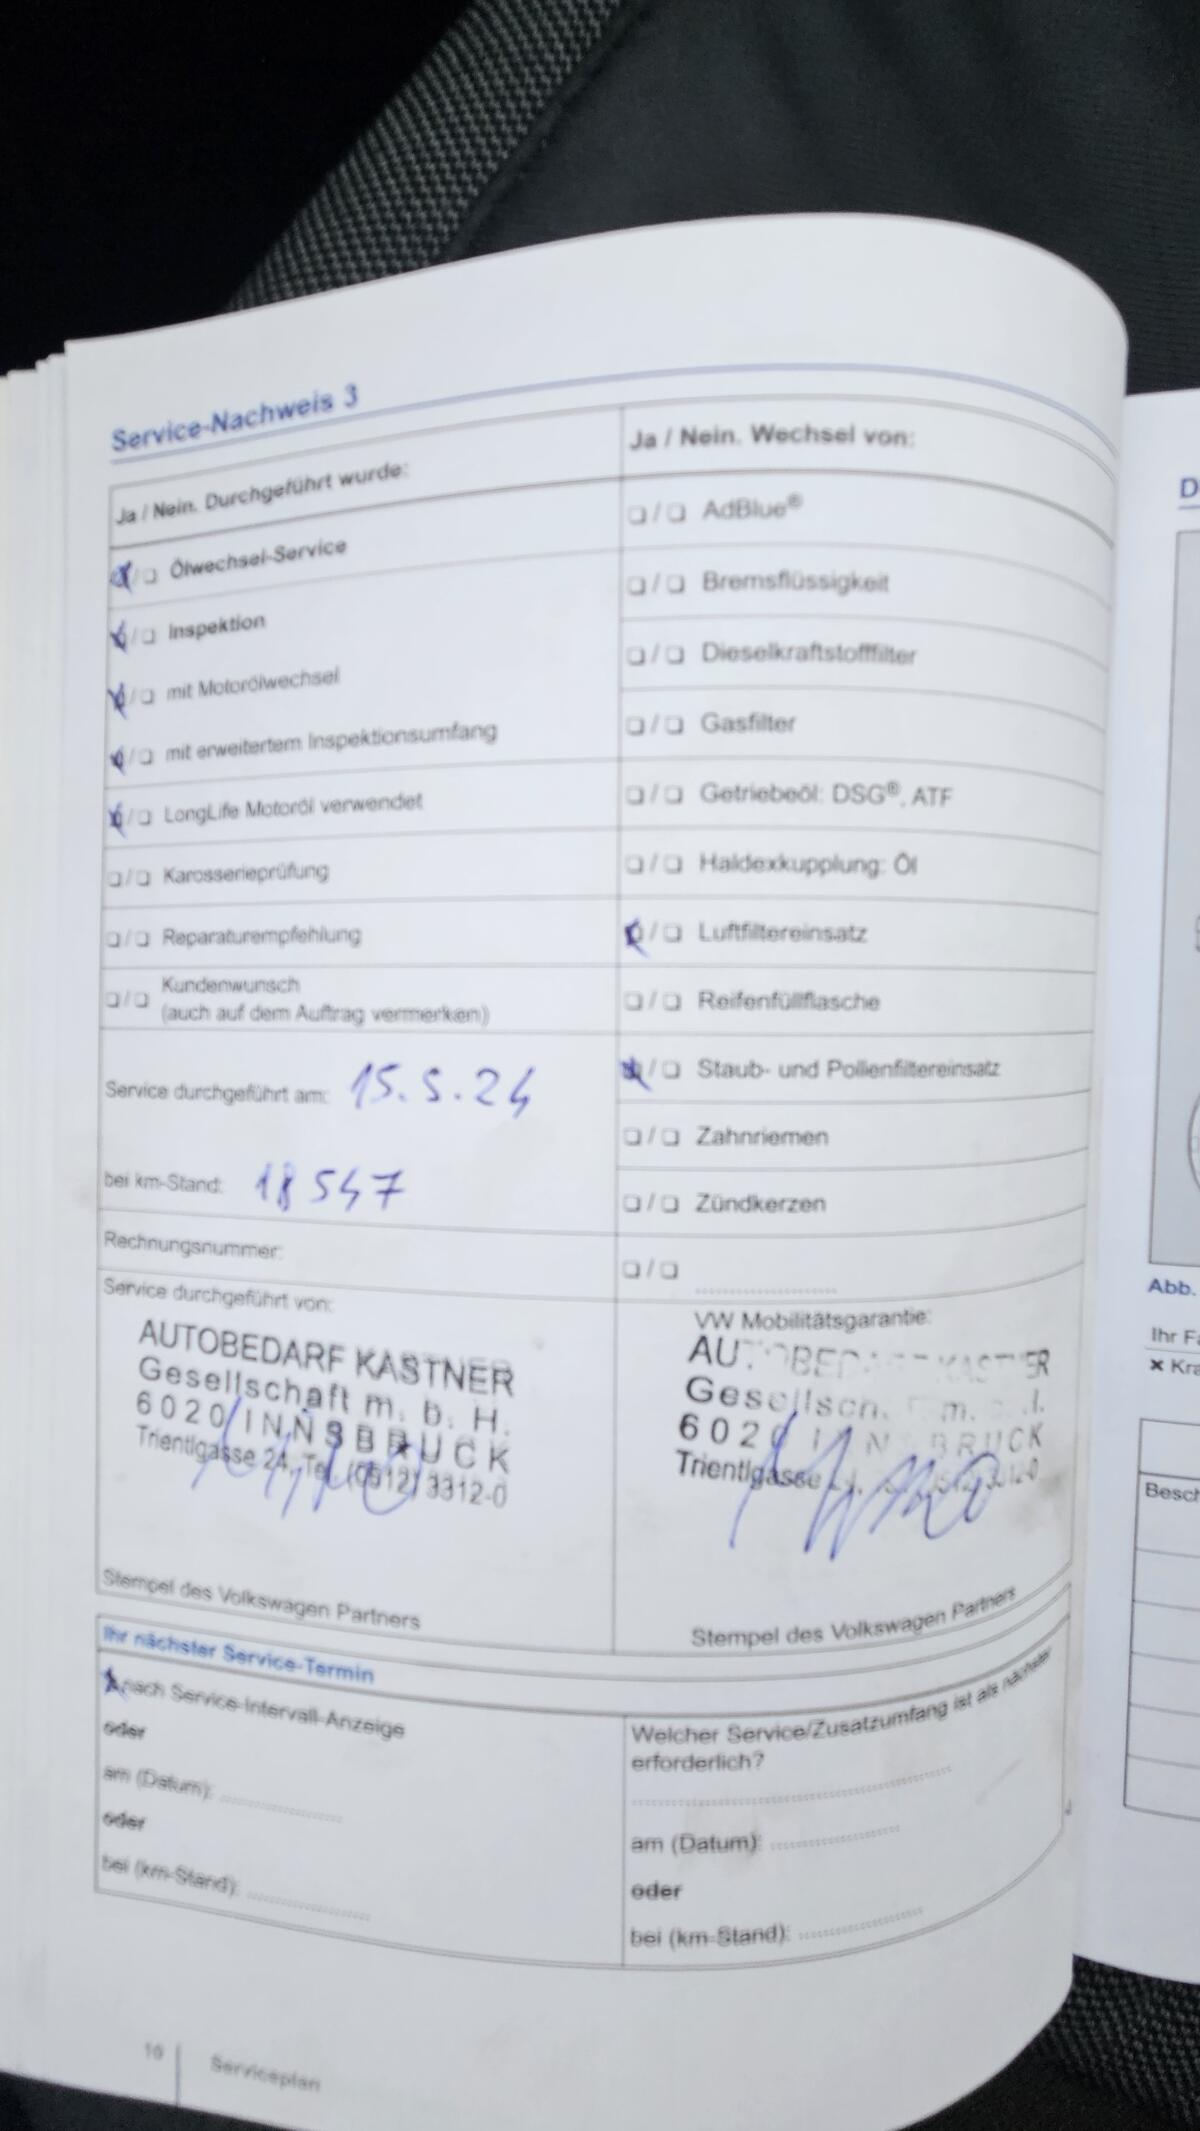 Service-Nachweis 3
Ja / Nein. Durchgeführt wurde:
☒/❏ Ölwechsel-Service
☒/❏ Inspektion
☒/❏ mit Motorölwechsel
☒/❏ mit erweitertem Inspektionsumfang
☒/❏ LongLife Motoröl verwendet
❏/❏ Karosserieprüfung
❏/❏ Reparaturempfehlung
❏/❏ Kundenwunsch
(auch auf dem Auftrag vermerken)
Service durchgeführt am: 15.5.24
bei km-Stand: 18547
Rechnungsnummer:
Service durchgeführt von:
AUTOBEDARF KASTNER
Gesellschaft m. b. H.
6020 INNSBRUCK
Trientlgasse 24, Tel. (0512) 3312-0
Stempel des Volkswagen Partners
Ja / Nein. Wechsel von:
❏/❏ AdBlue®
❏/❏ Bremsflüssigkeit
❏/❏ Dieselkraftstofffilter
❏/❏ Gasfilter
❏/❏ Getriebeöl: DSG®, ATF
❏/❏ Haldexkupplung: Öl
☒/❏ Luftfiltereinsatz
❏/❏ Reifenfüllflasche
☒/❏ Staub- und Pollenfiltereinsatz
❏/❏ Zahnriemen
❏/❏ Zündkerzen
❏/❏ ....................
VW Mobilitätsgarantie:
AUTOBEDARF KASTNER
Gesellsch. m. .
6020 INNSBRUCK
Trientlgasse 3312-0
Stempel des Volkswagen Partners
Ihr nächster Service-Termin
☒ nach Service-Intervall-Anzeige
oder
am (Datum): ....................
oder
bei (km-Stand): ....................
Welcher Service/Zusatzumfang ist als nächster
erforderlich?
am (Datum): ....................
oder
bei (km-Stand): ....................
10 Serviceplan
D
Abb.
Ihr Fa
× Kra
Besch